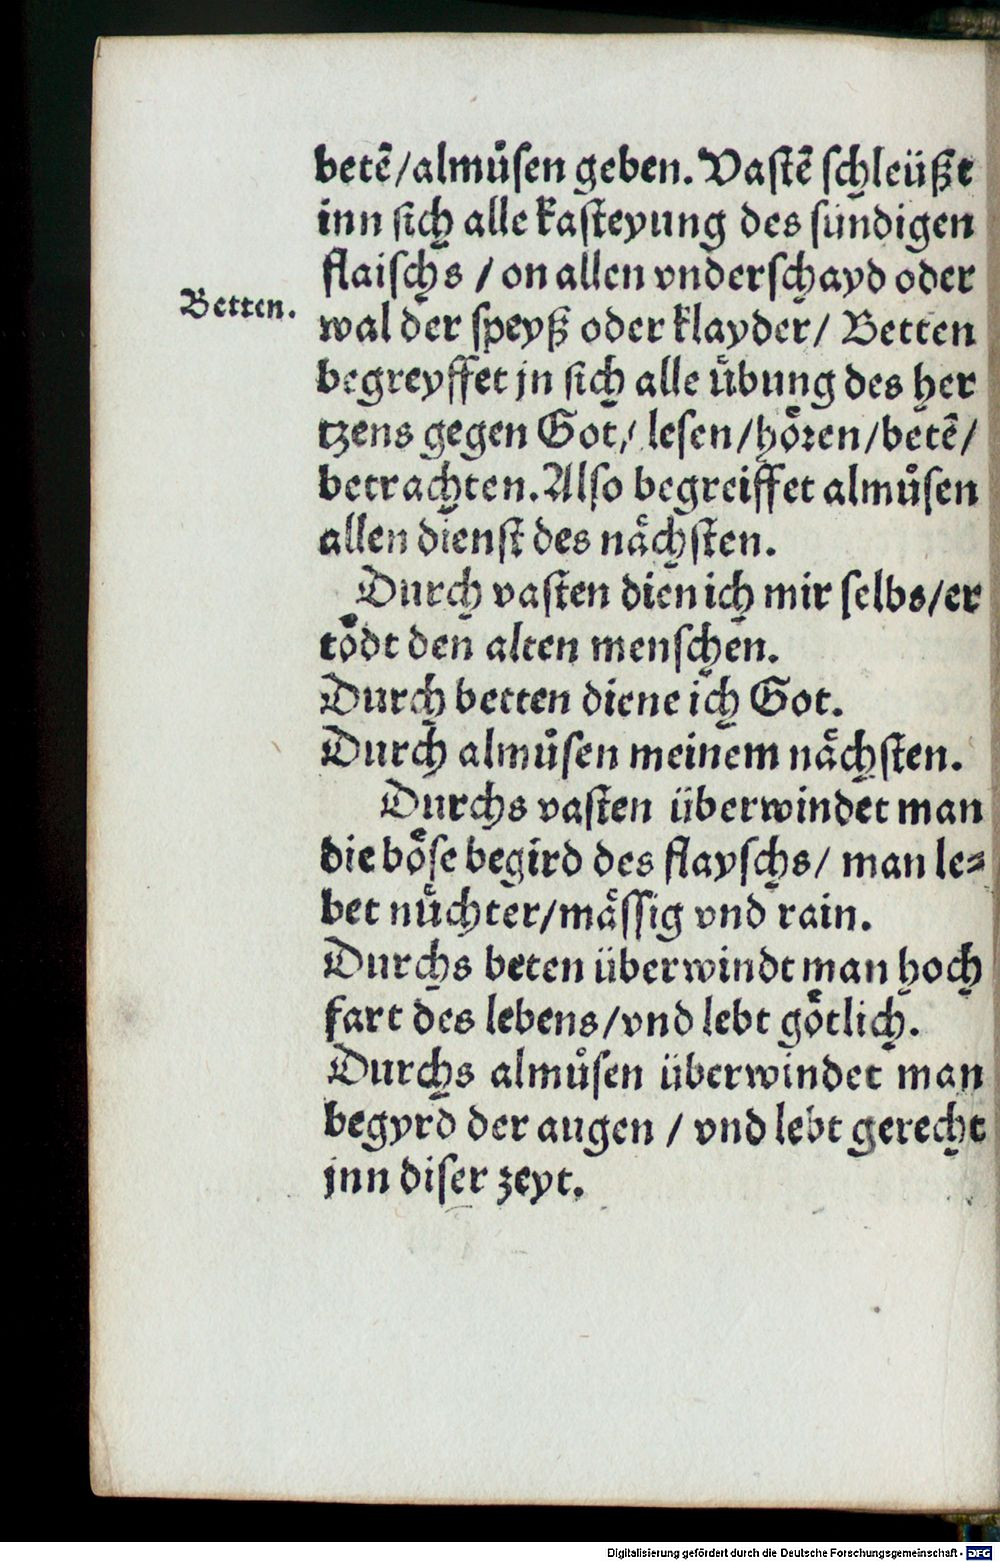 betē/almůsen geben. Vastē schleüßt
inn sich alle kasteyung des sündigen
flaischs / on allen vnderschayd oder
Betten.
wal der speyß oder klayder/ Betten
begreyffet jn sich alle übung des her
tzens gegen Got/ lesen/hoͤren/betē/
betrachten. Also begreiffet almůsen
allen dienst des naͤchsten.
Durch vasten dien ich mir selbs/er
toͤdt den alten menschen.
Durch betten diene ich Got.
Durch almůsen meinem naͤchsten.
Durchs vasten überwindet man
die boͤse begird des flayschs/ man le⸗
bet nuͤchter/maͤssig vnd rain.
Durchs beten überwindt man hoch
fart des lebens/vnd lebt goͤtlich.
Durchs almůsen überwindet man
begyrd der augen / vnd lebt gerecht
jnn diser zeyt.
Digitalisierung gefördert durch die Deutsche Forschungsgemeinschaft - DFG